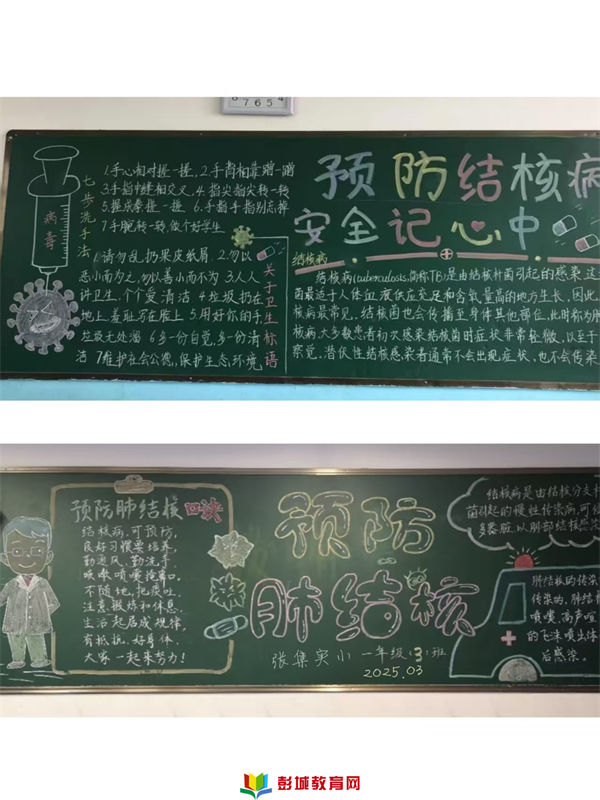 8 7 6 5 4
七步洗手法
病毒
1.手心相对搓一搓, 2.手背相靠蹭一蹭
3.手指中缝相交叉 4.指尖指尖转一转
5.握成拳搓一搓 6.手指手指别忘掉
7.手腕转一转做个好学生
1.请勿乱扔果皮纸屑 2.勿以
恶小而为之,勿以善小而不为 3.人人
讲卫生 个个爱清洁 4.垃圾扔在
地上,羞耻写在脸上 5.用好你的手
垃圾无处溜 6.多一份自觉,多一份清
洁 7.维护社会公德,保护生态环境
关于卫生标语
预防结核病
安全记心中
结核病
结核病(tuberculosis,简称TB)是由结核杆菌引起的感染
菌最适于人体血液供应充足和含氧量高的地方生长,因此,
核病最常见。结核菌也会传播至身体其他部位,此时称为肺
核病,大多数患者初次感染结核菌时症状非常轻微,以至于
察觉。潜伏性结核感染者通常不会出现症状,也不会传染
预防肺结核口诀
结核病,可预防,
良好习惯要培养,
勤通风,勤洗手,
咳嗽喷嚏掩着口,
不随地,把痰吐,
注意锻炼和休息,
生活起居成规律,
有抵抗,好身体,
大家一起来努力!
预防
肺结核
张集实小 一年级(3)班
2025.03
结核病是由结核分支杆
菌引起的慢性传染病,可侵
多脏,以肺部结核感染
肺结核的传染
传染的,肺结核
喷嚏,高声喧
的飞沫喷出体
后感染。
彭城教育网